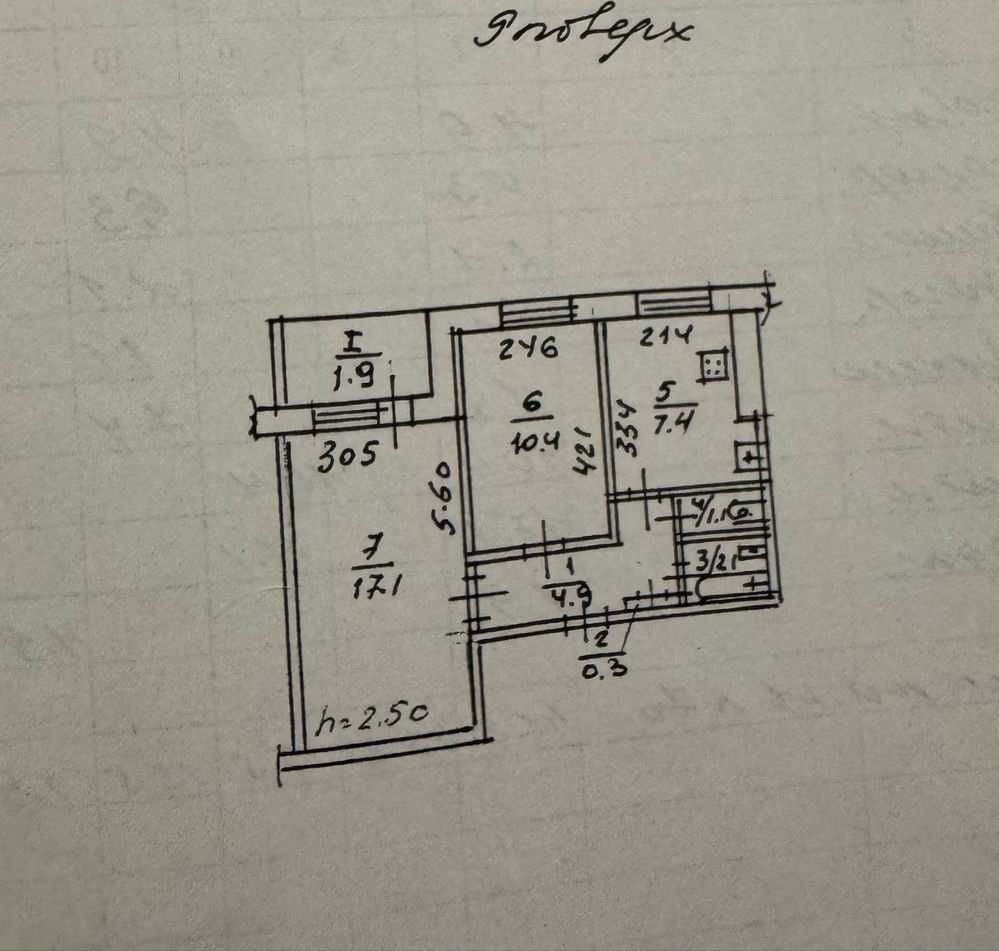 9 поверх
246
214
I
1.9
5
7.4
6
10.4
421
334
305
5.60
4/1.10
7
17.1
3/2.1
1
4.9
2
0.3
h=2.50